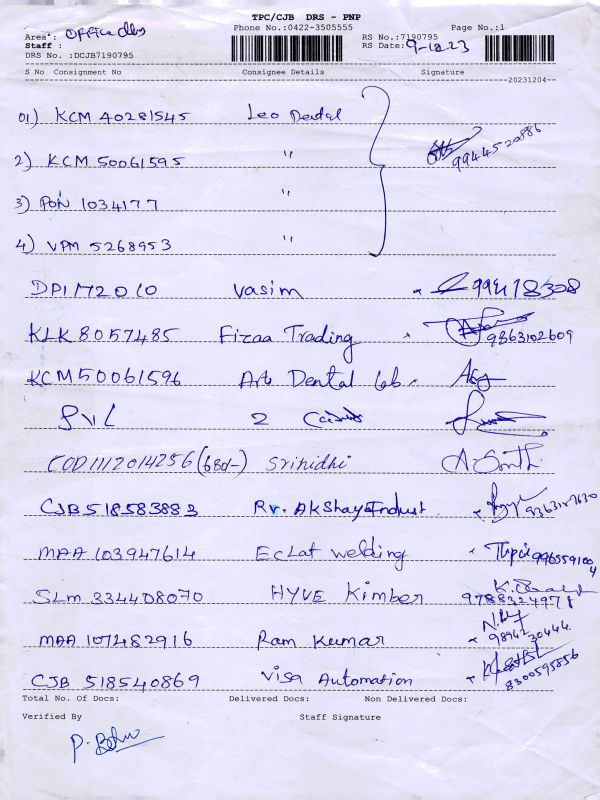 TPC/CJB DRS - PNP
Area : Office dls Phone No.:0422-3505555 RS No.:7190795 Page No.:1
Staff : RS Date: 9-12-23
DRS No. :DCJB7190795
S No Consignment No Consignee Details Signature
20231204
01) KCM 40281545 Leo Dental
9944520886
2) KCM 50061595 "
3) PON 1034177 "
4) VPM 5268953 "
DPI172010 Vasim
KLK8057485 Fizaa Trading 9363102609
KCM50061596 Art Dental lab
PVL 2
COD1112014256 (680/-) Srinidhi
CJB518583883 Rv. Akshaya Indust
MAA 103947614 Eclat welding
SLM 334408070 HYVE Kimber 9788324971
MAA 107482916 Ram Kumar 9894230444
CJB 518540869 Visa Automation 8300595856
Total No. Of Docs: Delivered Docs: Non Delivered Docs:
Verified By Staff Signature